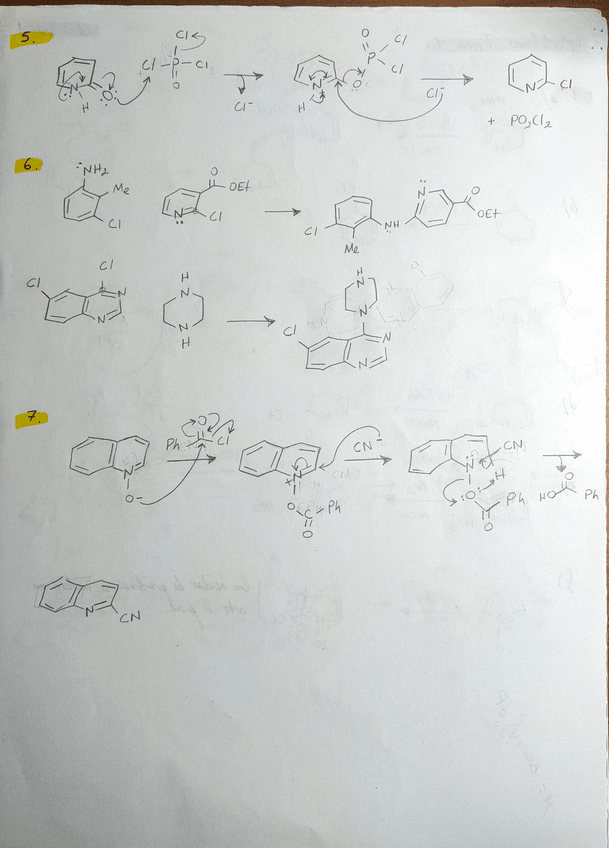 5.
Cl
Cl P Cl
O
N
H
O
Cl⁻
O
P Cl
Cl
N
H
O
Cl⁻
N Cl
+ PO₂Cl₂
6.
NH₂
Me
Cl
O
OEt
N Cl
Cl
NH
Me
N
O
OEt
Cl
Cl
N
N
H
N
N
H
H
N
N
Cl
N
N
7.
O
Ph Cl
N
O⁻
N
+
O
C Ph
O
CN⁻
N
CN
H
O
Ph
O
O
HO Ph
N CN